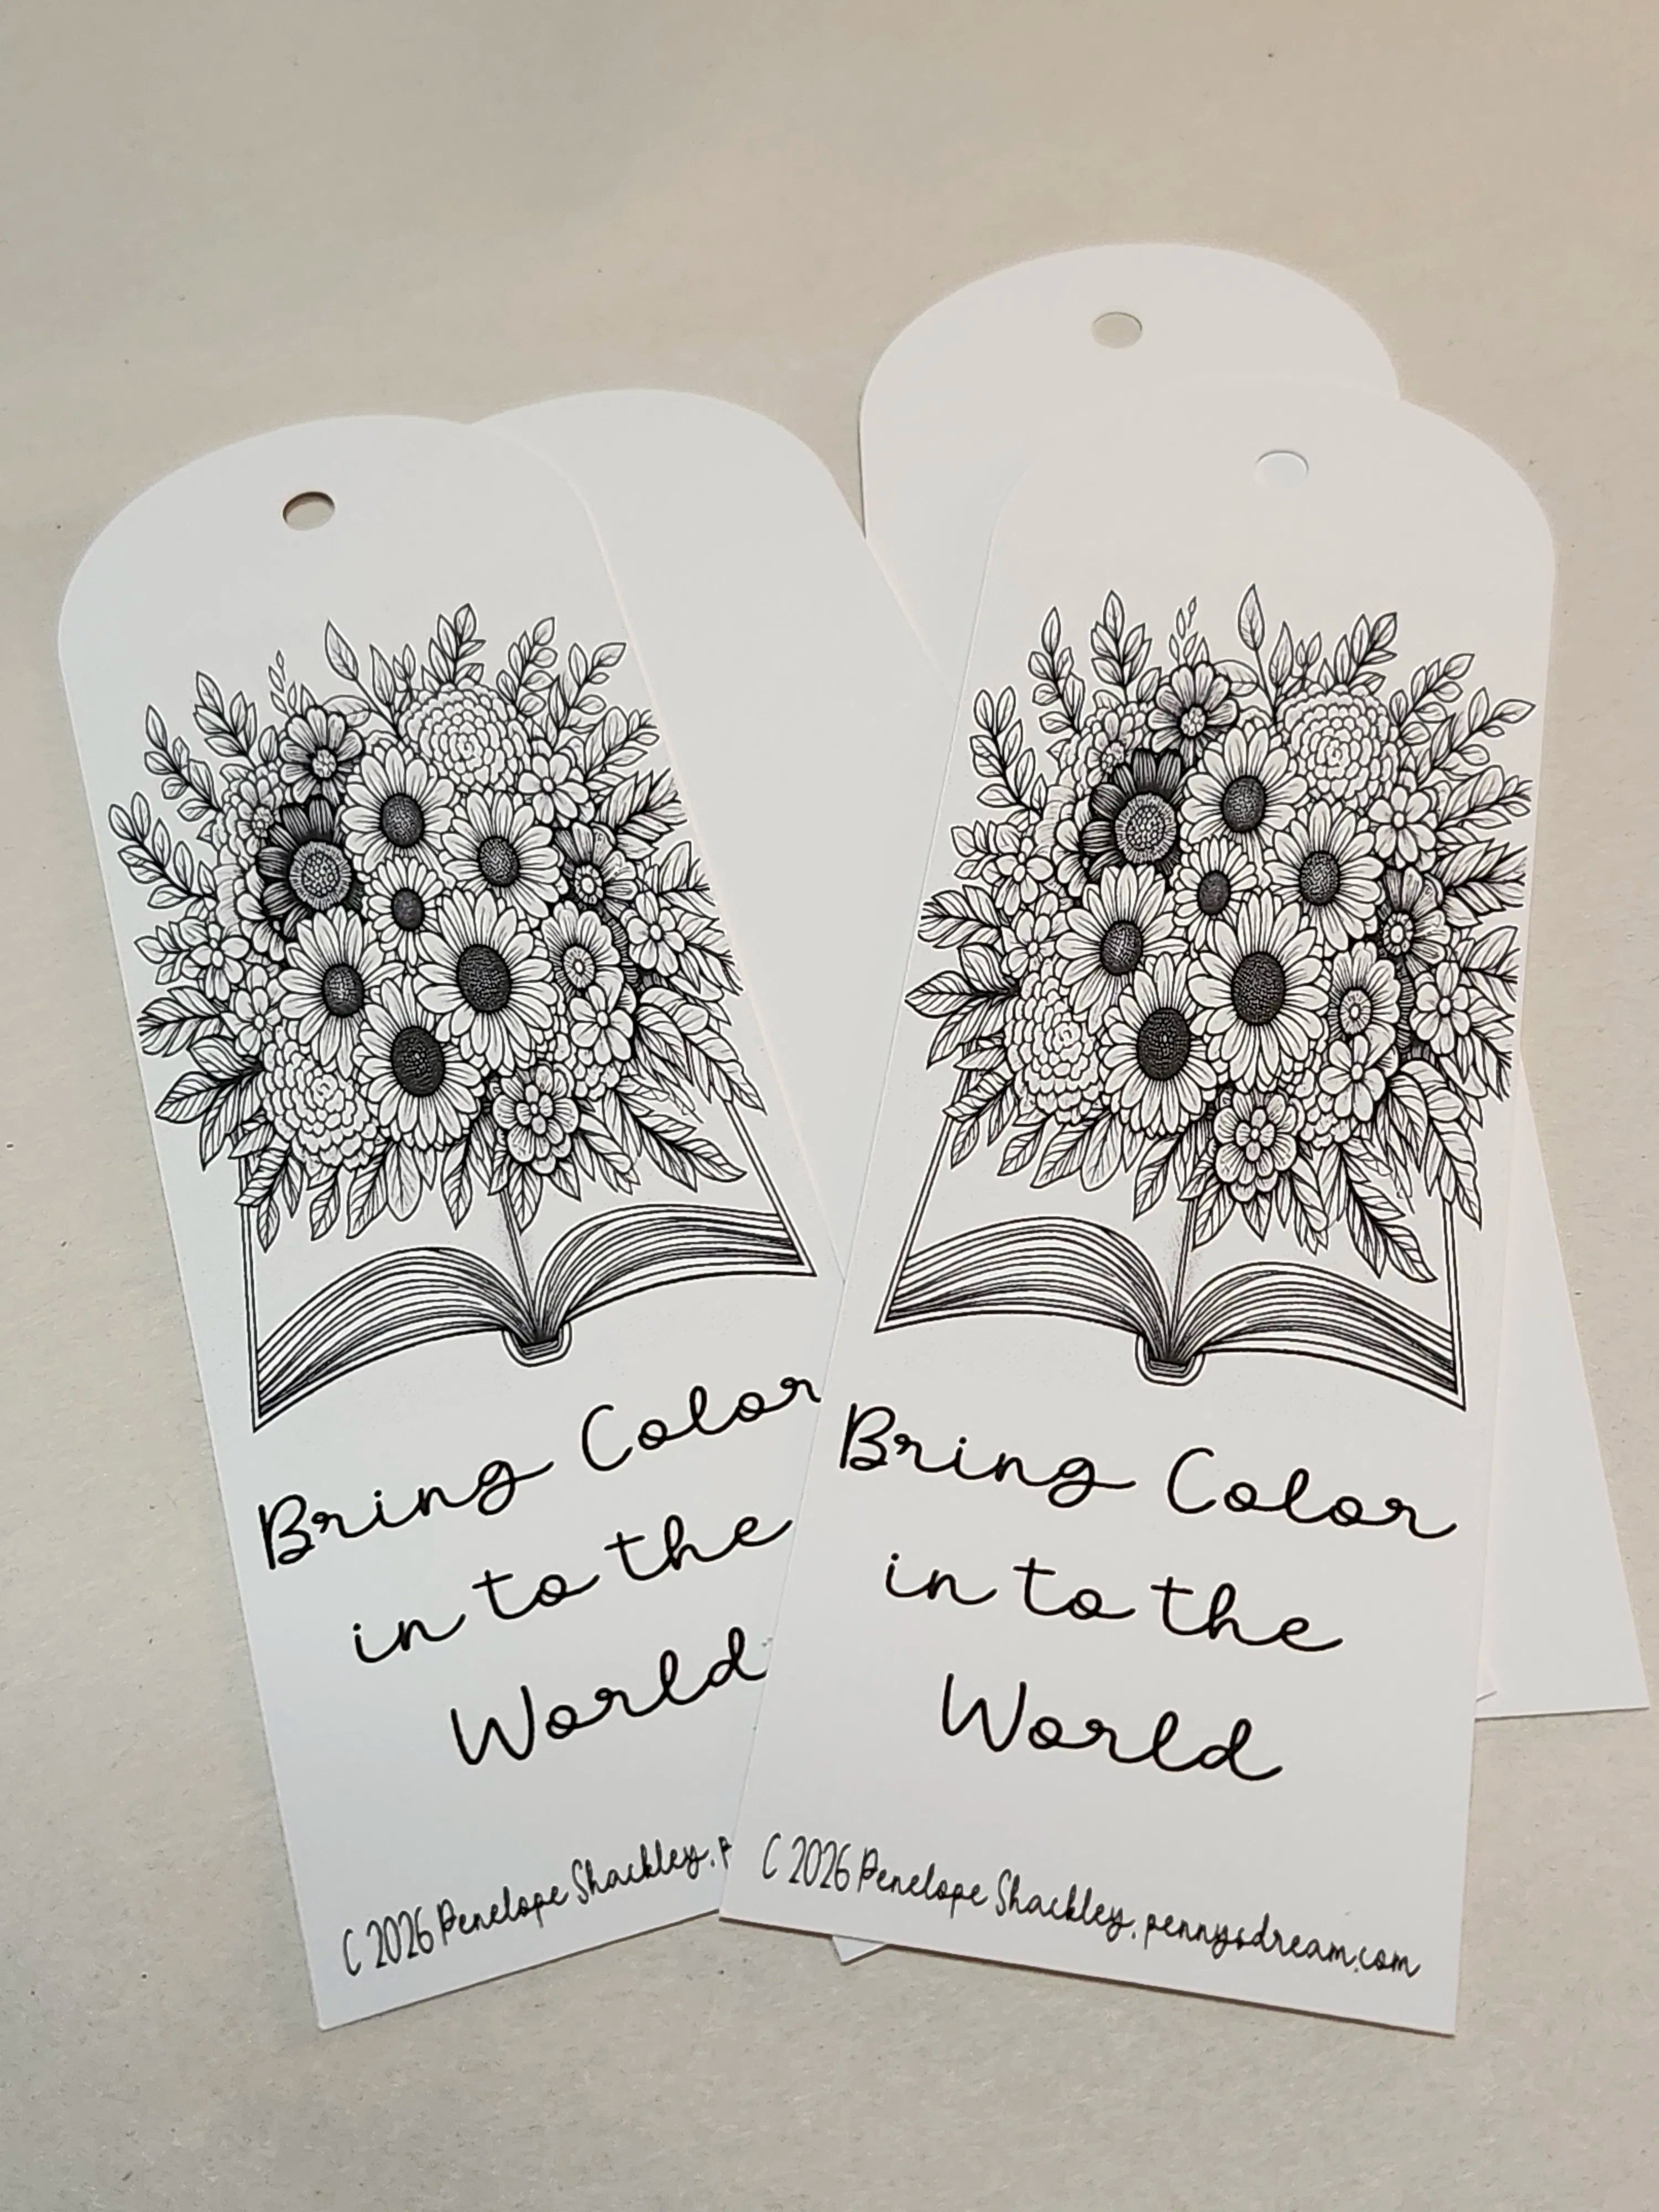 Bring Color
in to the
World
C 2026 Penelope Shackley. p
Bring Color
in to the
World
C 2026 Penelope Shackley. pennysdream.com